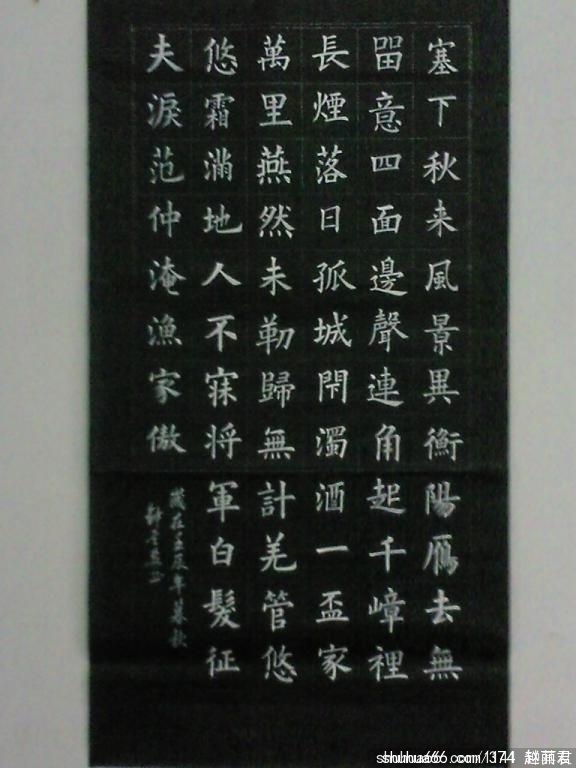 塞下秋来風景異衡陽雁去無
留意四面邊聲連角起千嶂裡
長煙落日孤城閇濁酒一盃家
萬里燕然未勒歸無計羌管悠
悠霜滿地人不寐将軍白髮征
夫淚范仲淹漁家傲
歲在壬辰年暮秋